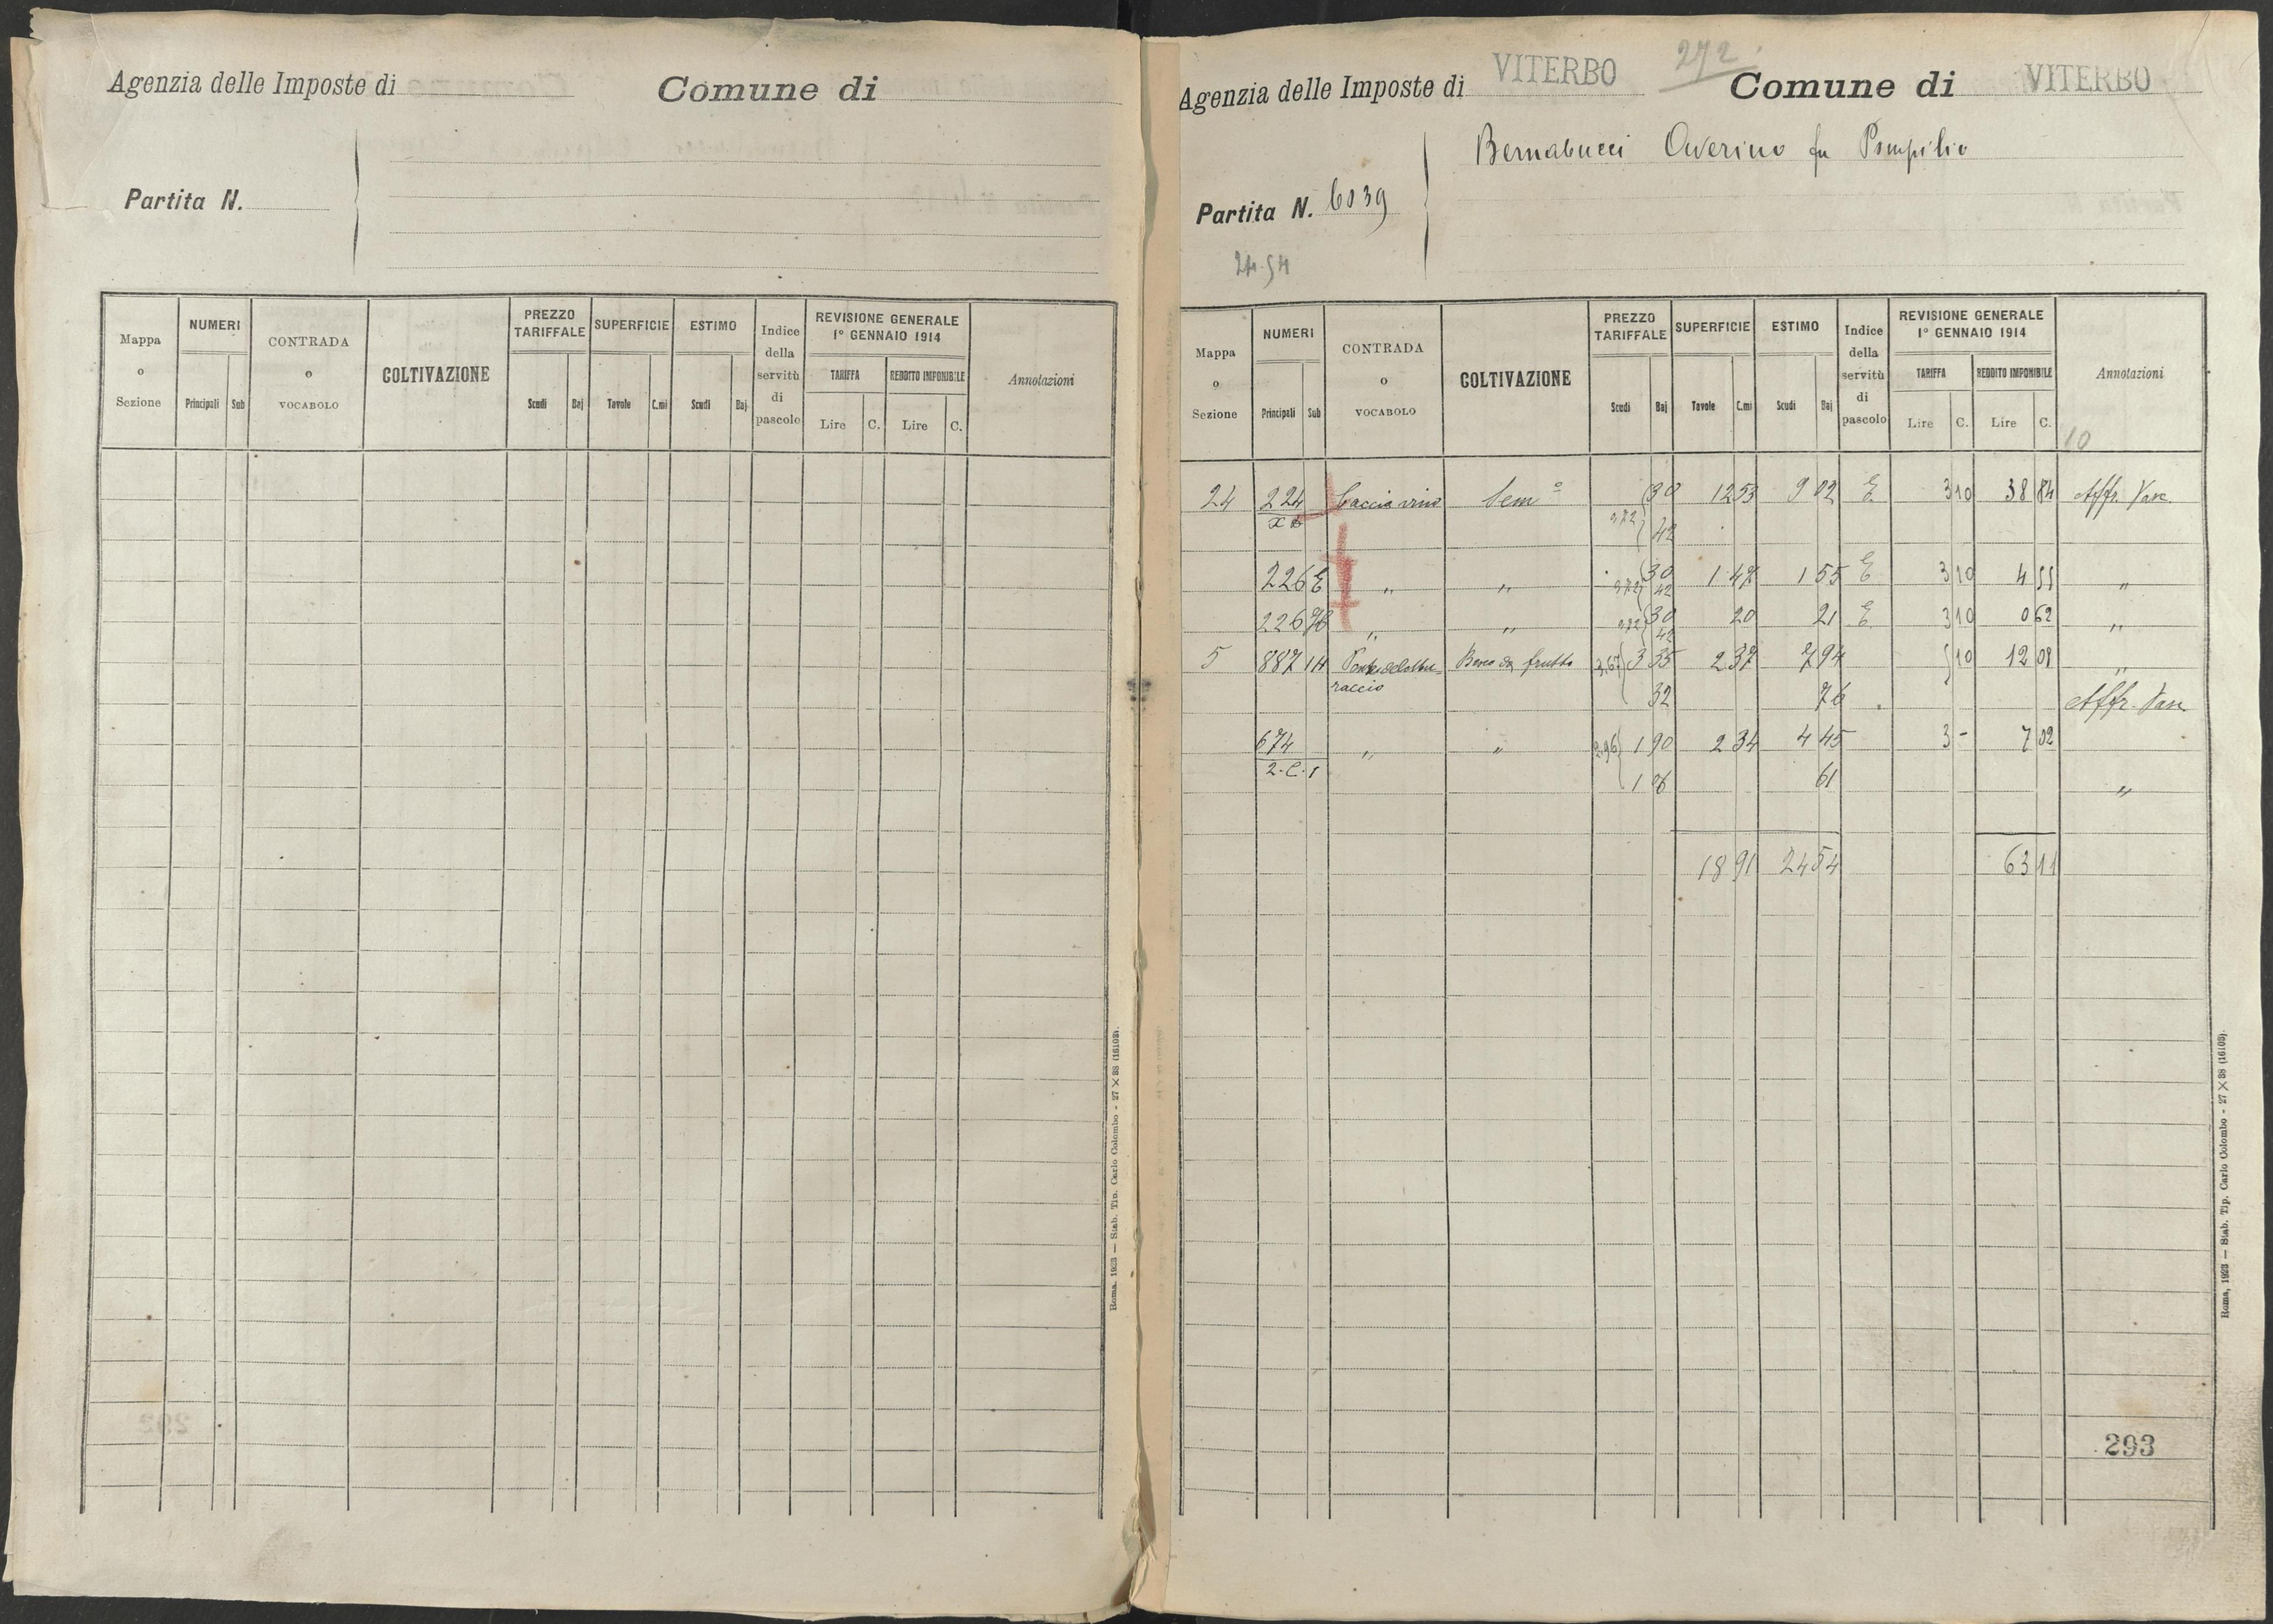 Agenzia delle Imposte di
Comune di
Partita N.
Mappa o Sezione
NUMERI
Principali
Sub
CONTRADA o VOCABOLO
COLTIVAZIONE
PREZZO TARIFFALE
Scudi
Baj
SUPERFICIE
Tavole
C.mi
ESTIMO
Scudi
Baj
Indice della servitù di pascolo
REVISIONE GENERALE
1° GENNAIO 1914
TARIFFA
Lire
C.
REDDITO IMPONIBILE
Lire
C.
Annotazioni
Roma, 1923 — Stab. Tip. Carlo Colombo - 27 × 38 (16103).
Agenzia delle Imposte di VITERBO
272
Comune di VITERBO
Bernabucci Averino fu Pompilio
Partita N. 6039
24.54
Mappa o Sezione
NUMERI
Principali
Sub
CONTRADA o VOCABOLO
COLTIVAZIONE
PREZZO TARIFFALE
Scudi
Baj
SUPERFICIE
Tavole
C.mi
ESTIMO
Scudi
Baj
Indice della servitù di pascolo
REVISIONE GENERALE
1° GENNAIO 1914
TARIFFA
Lire
C.
REDDITO IMPONIBILE
Lire
C.
Annotazioni
10
24 224 Caccia vino Sem° 30 12 53 9 02 E 3 10 38 84 Affr. Pasc.
42
226 E " " 30 1 47 1 55 E 3 10 4 55 "
42
226 " " 30 20 21 E 3 10 0 62 "
42
5 887 1H Bosco da frutto 3 35 2 37 7 94 5 10 12 08 "
raccio 32 76 Affr. Pasc
674 " " 2,96 1 90 2 34 4 45 3 - 7 02
2.C.1 61 "
18 91 24 54 63 11
293
Roma, 1923 — Stab. Tip. Carlo Colombo - 27 × 38 (16103).